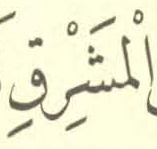 الْمَشْرِقِ